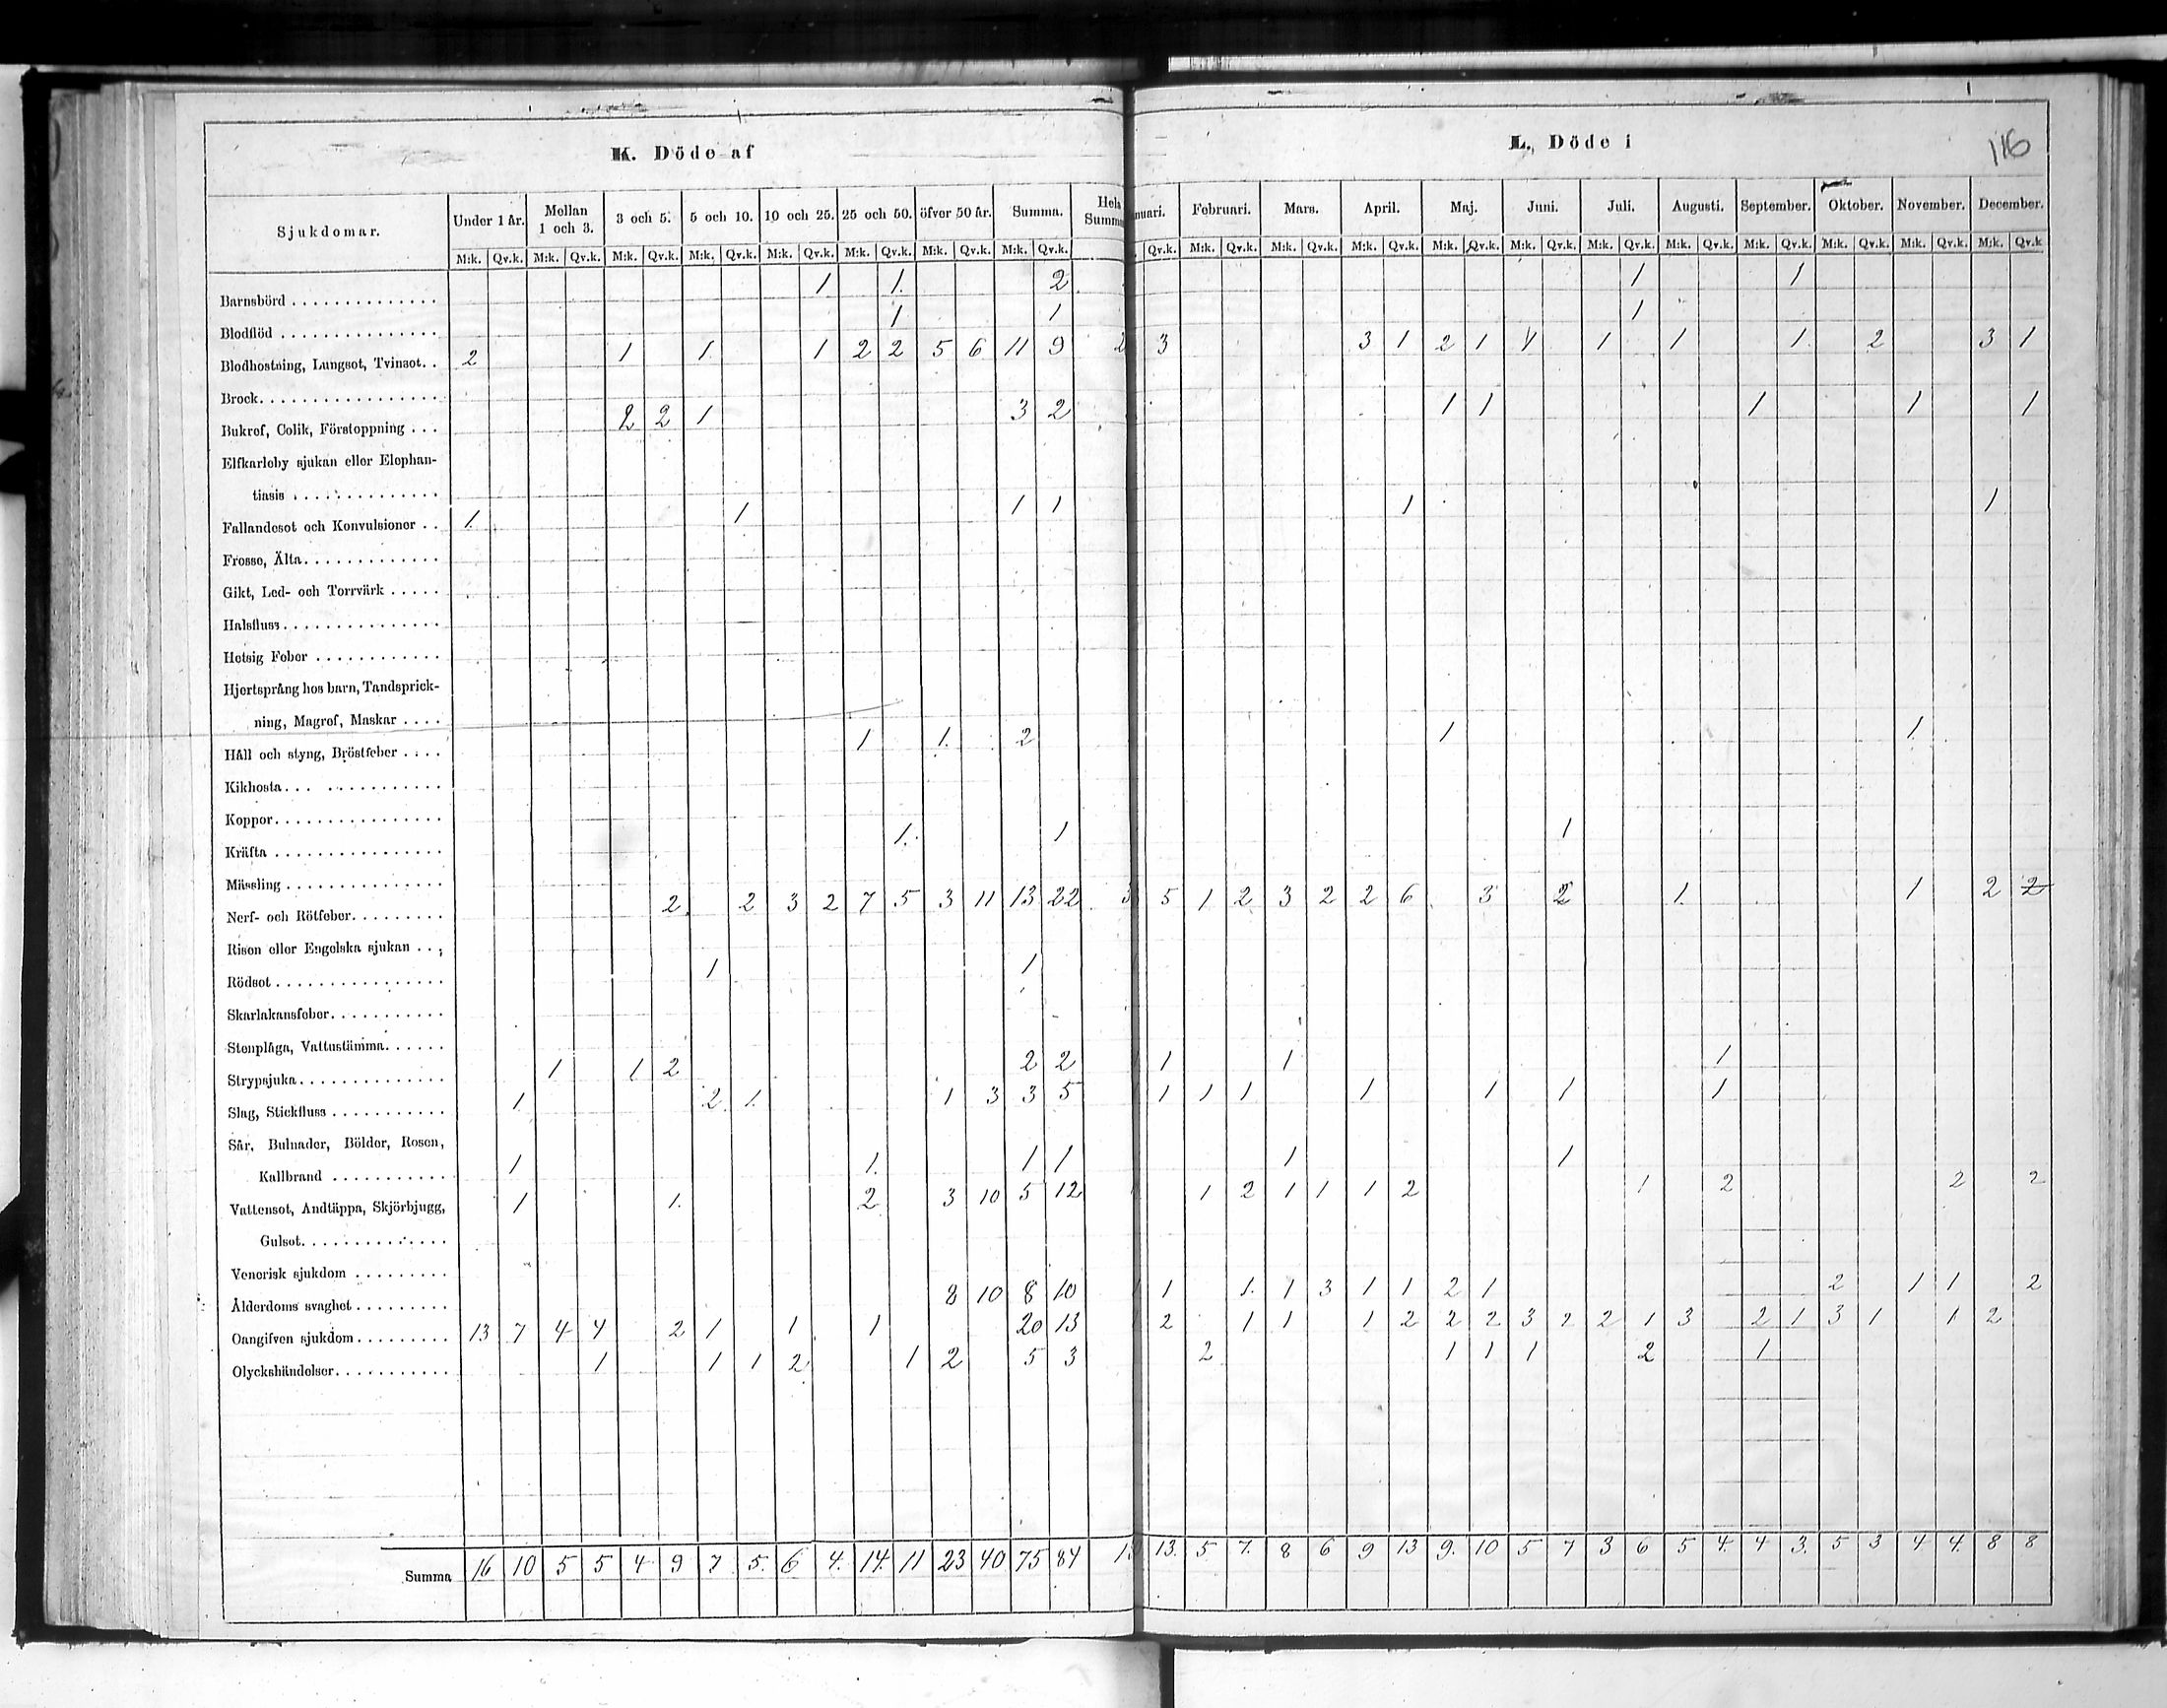 K. Döde af
L. Döde i
116
Sjukdomar. Under 1 år. Mellan 1 och 3. 3 och 5. 5 och 10. 10 och 25. 25 och 50. öfver 50 år. Summa. Hela Februari. Mars. April. Maj. Juni. Juli. Augusti. September. Oktober. November. December.
M:k. Qv.k. M:k. Qv.k. M:k. Qv.k. M:k. Qv.k. M:k. Qv.k. M:k. Qv.k. M:k. Qv.k. M:k. Qv.k. Qv.k. M:k. Qv.k. M:k. Qv.k. M:k. Qv.k. M:k. Qv.k. M:k. Qv.k. M:k. Qv.k. M:k. Qv.k. M:k. Qv.k. M:k. Qv.k. M:k. Qv.k. M:k. Qv.k
Barnsbörd 1 1. 2 1 1
Blodflöd 1 1 1
Blodhostning, Lungsot, Tvinsot. 2 1 1 1 2 2 5 6 11 9 2 3 3 1 2 1 4 1 1 1 2 3 1
Brock
Bukref, Colik, Förstoppning 2 2 1 3 2 1 1 1 1 1
Elfkarleby sjukan eller Elephan-
tiasis
Fallandesot och Konvulsioner 1. 1 1 1 1 1
Frosse, Älta
Gikt, Led- och Torrvärk
Halsfluss
Hetsig Feber
Hjertsprång hos barn, Tandsprick-
ning, Magref, Maskar
Håll och styng, Bröstfeber 1 1. 2 1 1.
Kikhosta
Koppor
Kräfta 1. 1 1
Mässling
Nerf- och Rötfeber 2 2 3 2 7 5 3 11 13 22 3 5 1 2 3 2 2 6 3 2 1. 1 2 2
Risen eller Engelska sjukan
Rödsot 1 1
Skarlakansfeber
Stenplåga, Vattustämma
Strypsjuka 1 1 2 2 2 1 1 1
Slag, Stickfluss 1. 2 1. 1 3 3 5 1 1 1 1 1 1 1
Sår, Bulnader, Bölder, Rosen,
Kallbrand 1 1. 1 1 1 1
Vattensot, Andtäppa, Skjörbjugg, 1 1. 2 3 10 5 12 1 2 1 1 1 2 1 2 2 2
Gulsot
Venerisk sjukdom
Ålderdoms svaghet 8 10 8 10 1 1 1. 1 3 1 1 2 1 2 1 1 2
Oangifven sjukdom 13 7 4 4 2 1 1 1 20 13 1 2 1 1 1 2 2 2 3 2 2 1 3 2 1 3 1 1 2
Olyckshändelser 1 1 1 2 1 2 5 3 2 1 1 1 2 1
Summa 16 10 5 5 4 9 7 5. 6 4. 14. 11 23 40 75 84 13. 5 7. 8 6 9 13 9. 10 5 7 3 6 5 4. 4 3. 5 3 4 4. 8 8